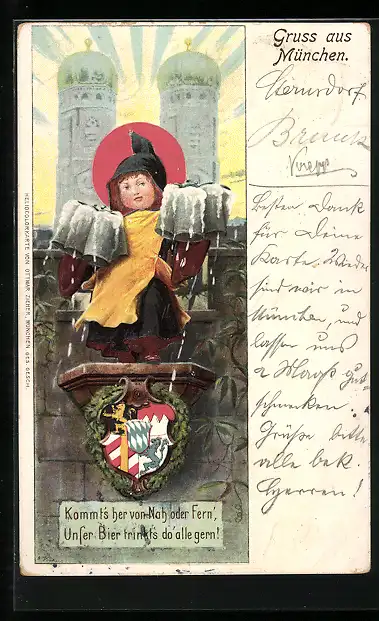 Gruss aus
München.
Besten Dank
für Deine
Karte. Wieder
sind wir in
München, und
lassen uns
a Maaß gut
schmecken.
Grüße bitte
alle bek.
Herren!
HELIOCOLORKARTE VON OTTMAR ZIEHER, MÜNCHEN. GES. GESCH.
Kommt's her von Nah oder Fern',
Unser Bier trinkt's do' alle gern!